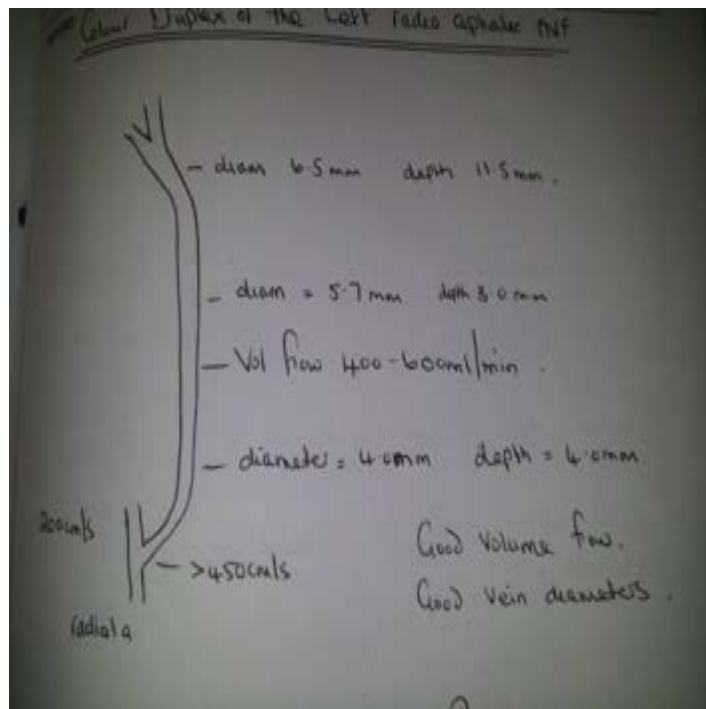 Colour Duplex of the Left radio cephalic AVF
- diam 6.5mm depth 11.5mm.
- diam = 5.7mm depth 3.0mm
- Vol flow 400-600ml/min.
- diameter = 4.0mm depth = 4.0mm
200cm/s
Good Volume flow.
- >450cm/s
Good Vein diameters.
radial a